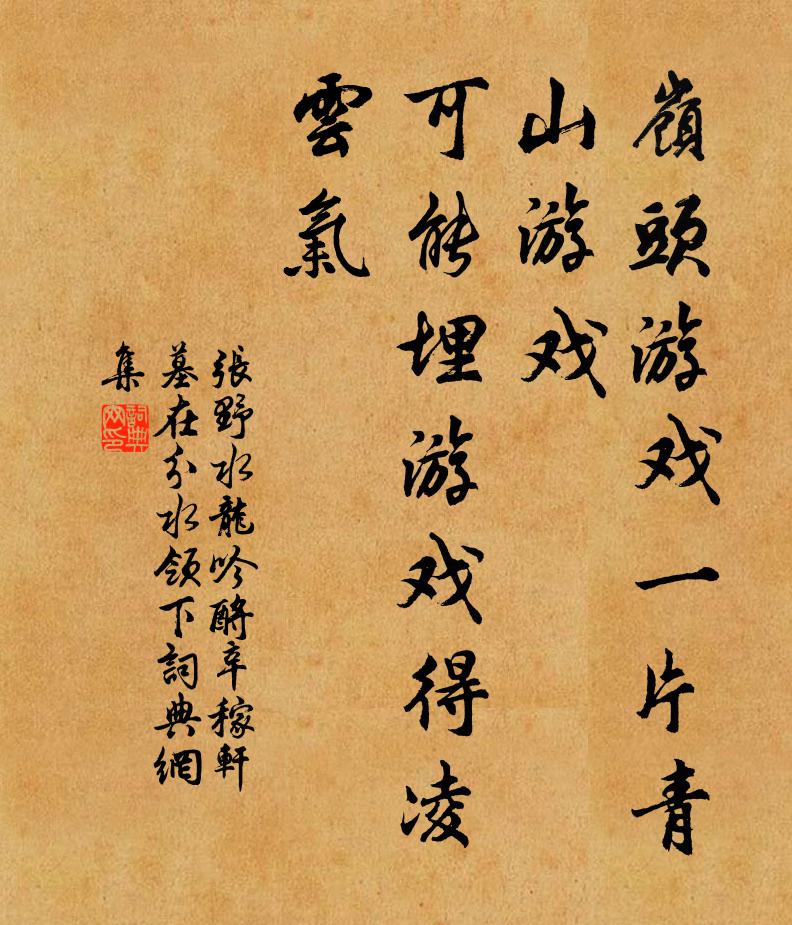 嶺頭游戏一片青
山游戏
可能埋游戏得凌
雲氣
張野水龍吟酹辛稼軒
墓在分水領下詞典網
集
詞典網印